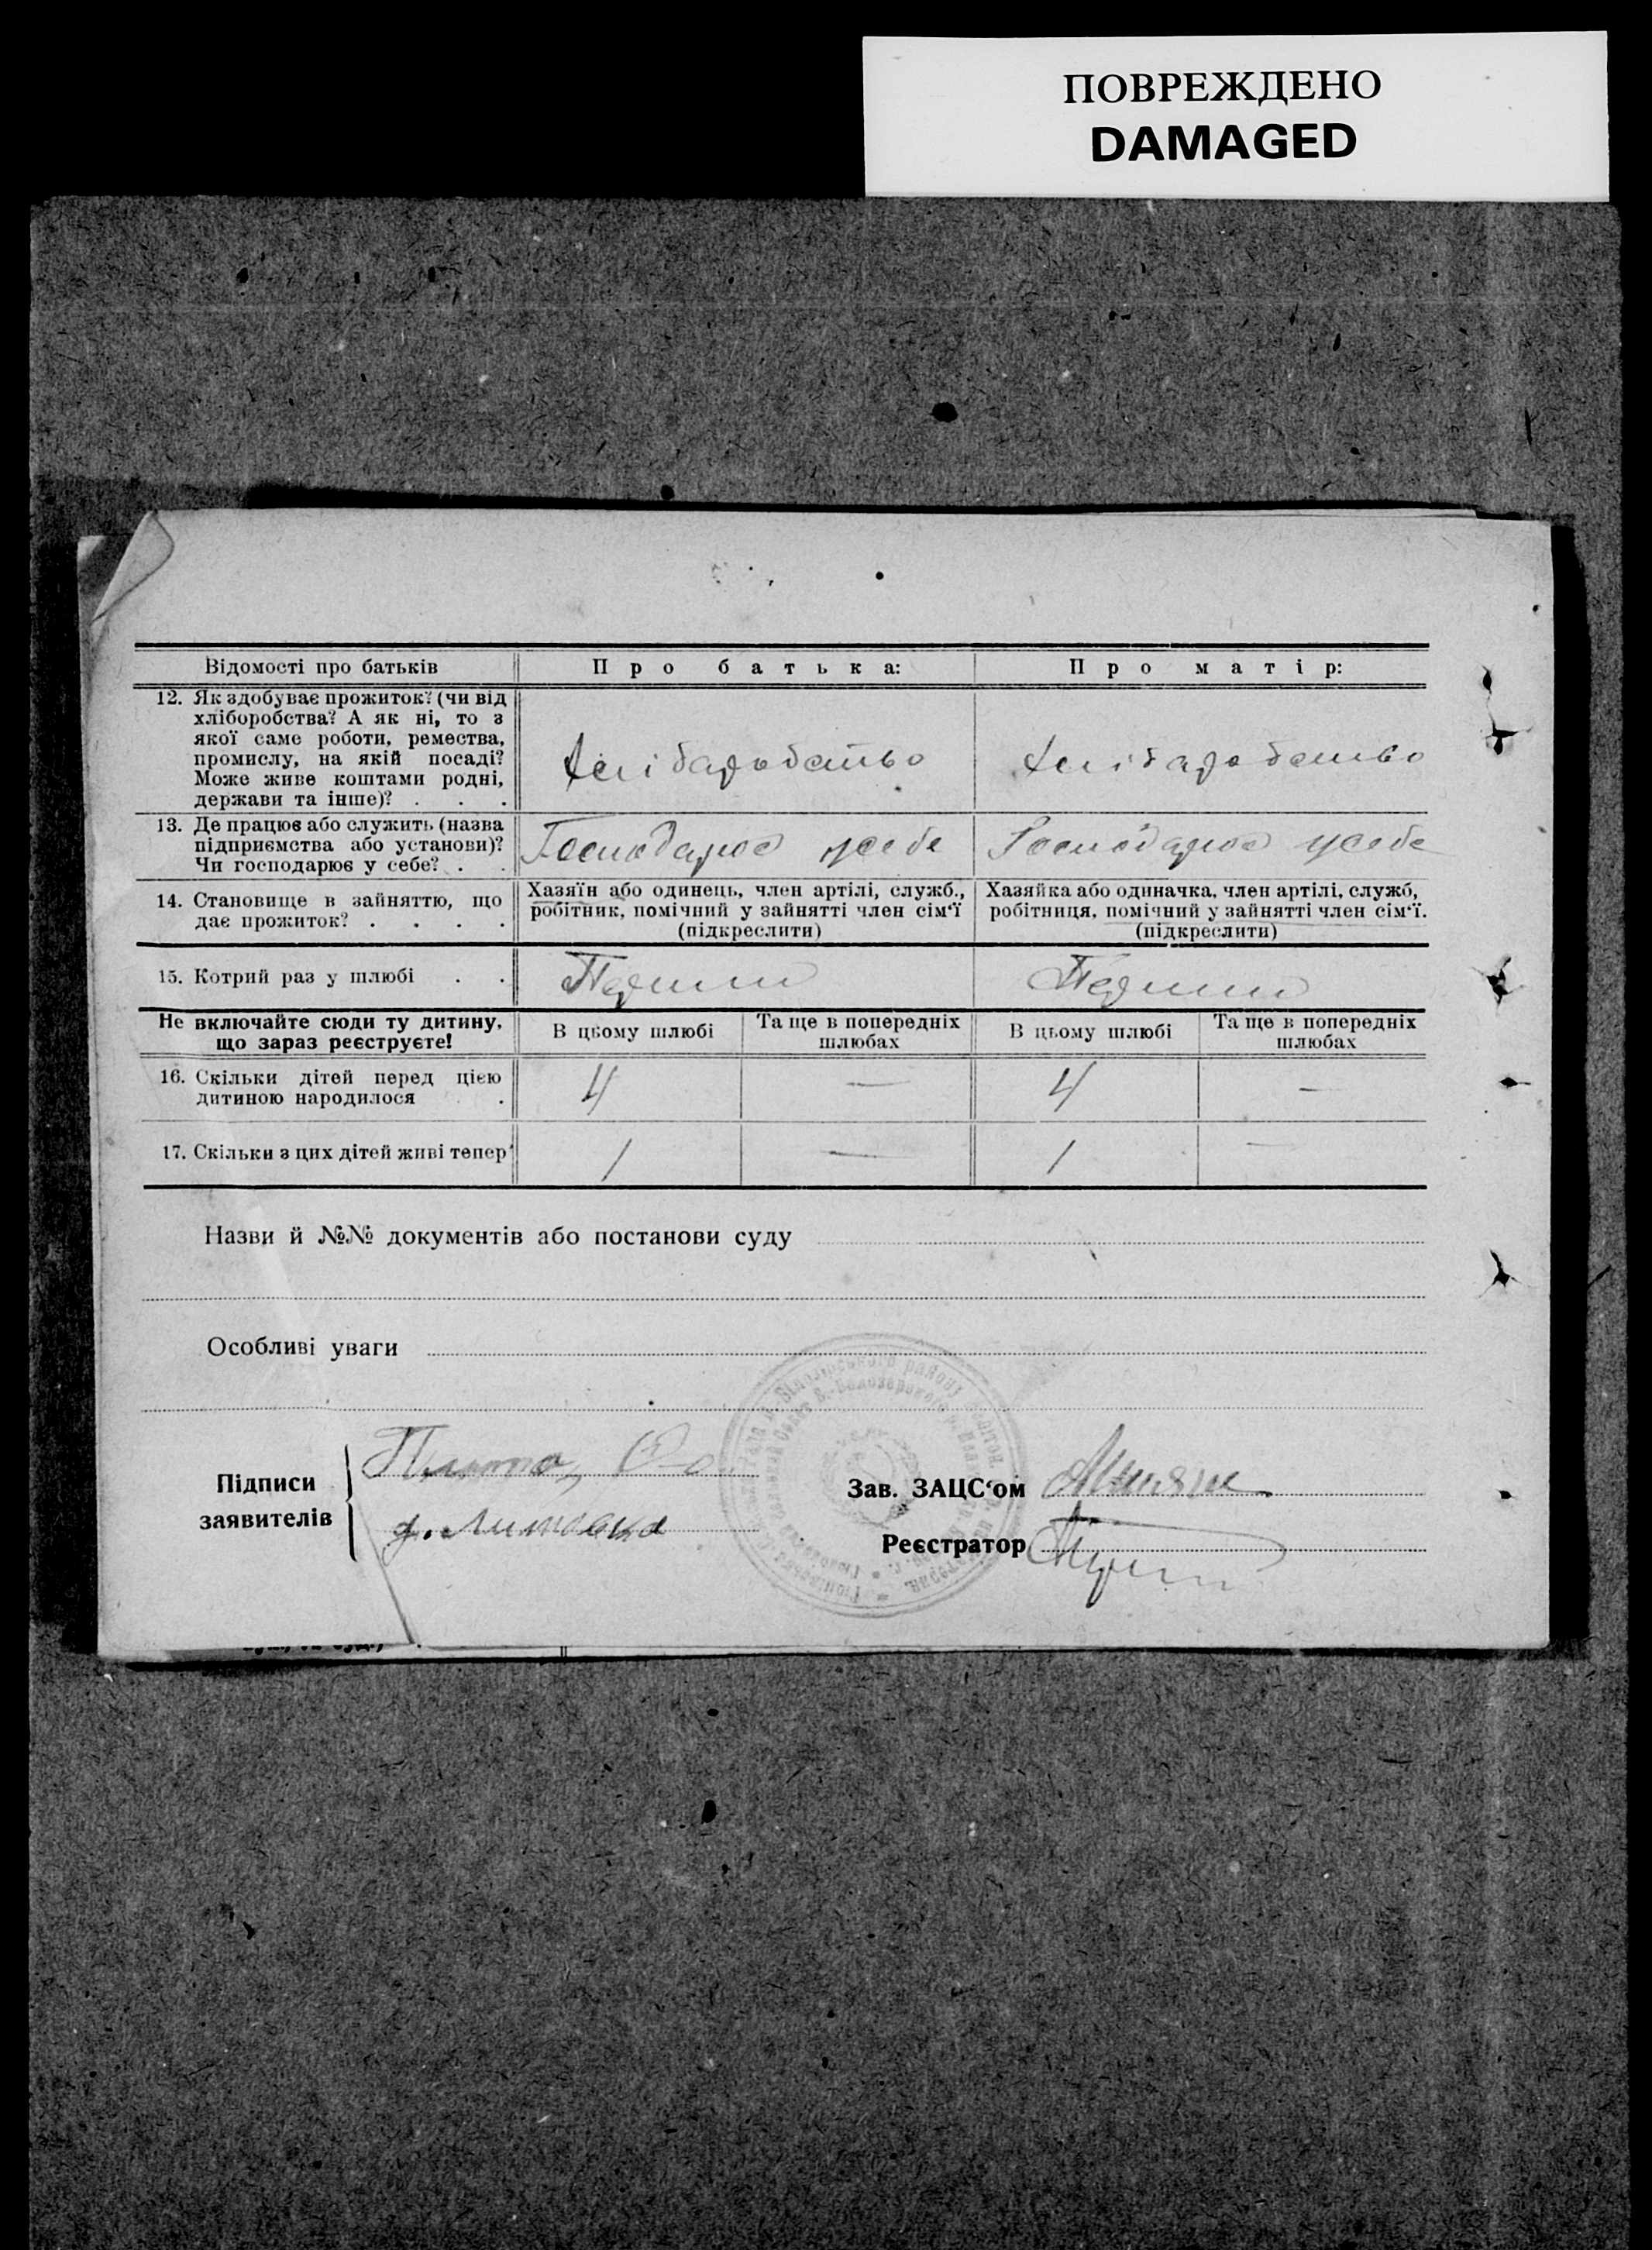 ПОВРЕЖДЕНО
DAMAGED
Відомості про батьків
Про батька:
Про матір:
12. Як здобуває прожиток? (чи від
хліборобства? А як ні, то з
якої саме роботи, ремества,
промислу, на якій посаді?
Може живе коштами родні,
держави та інше)? . . .
Хлібаробство
Хлібаробство
13. Де працює або служить (назва
підприємства або установи)?
Чи господарює у себе? . .
Господарює усебе
Господарює усебе
14. Становище в зайняттю, що
дає прожиток? . . . .
Хазяїн або одинець, член артілі, служб.,
робітник, помічний у зайнятті член сім‘ї
(підкреслити)
Хазяйка або одиначка, член артілі, служб,
робітниця, помічний у зайнятті член сім‘ї.
(підкреслити)
15. Котрий раз у шлюбі . .
Перший
Перший
Не включайте сюди ту дитину,
що зараз реєструєте!
В цьому шлюбі
Та ще в попередніх
шлюбах
В цьому шлюбі
Та ще в попередніх
шлюбах
16. Скільки дітей перед цією
дитиною народилося .
4 — 4 —
17. Скільки з цих дітей живі тепер
1 — 1 —
Назви й №№ документів або постанови суду
Особливі уваги
Підписи
заявителів
Литовка
Зав. ЗАЦС‘ом
Реєстратор